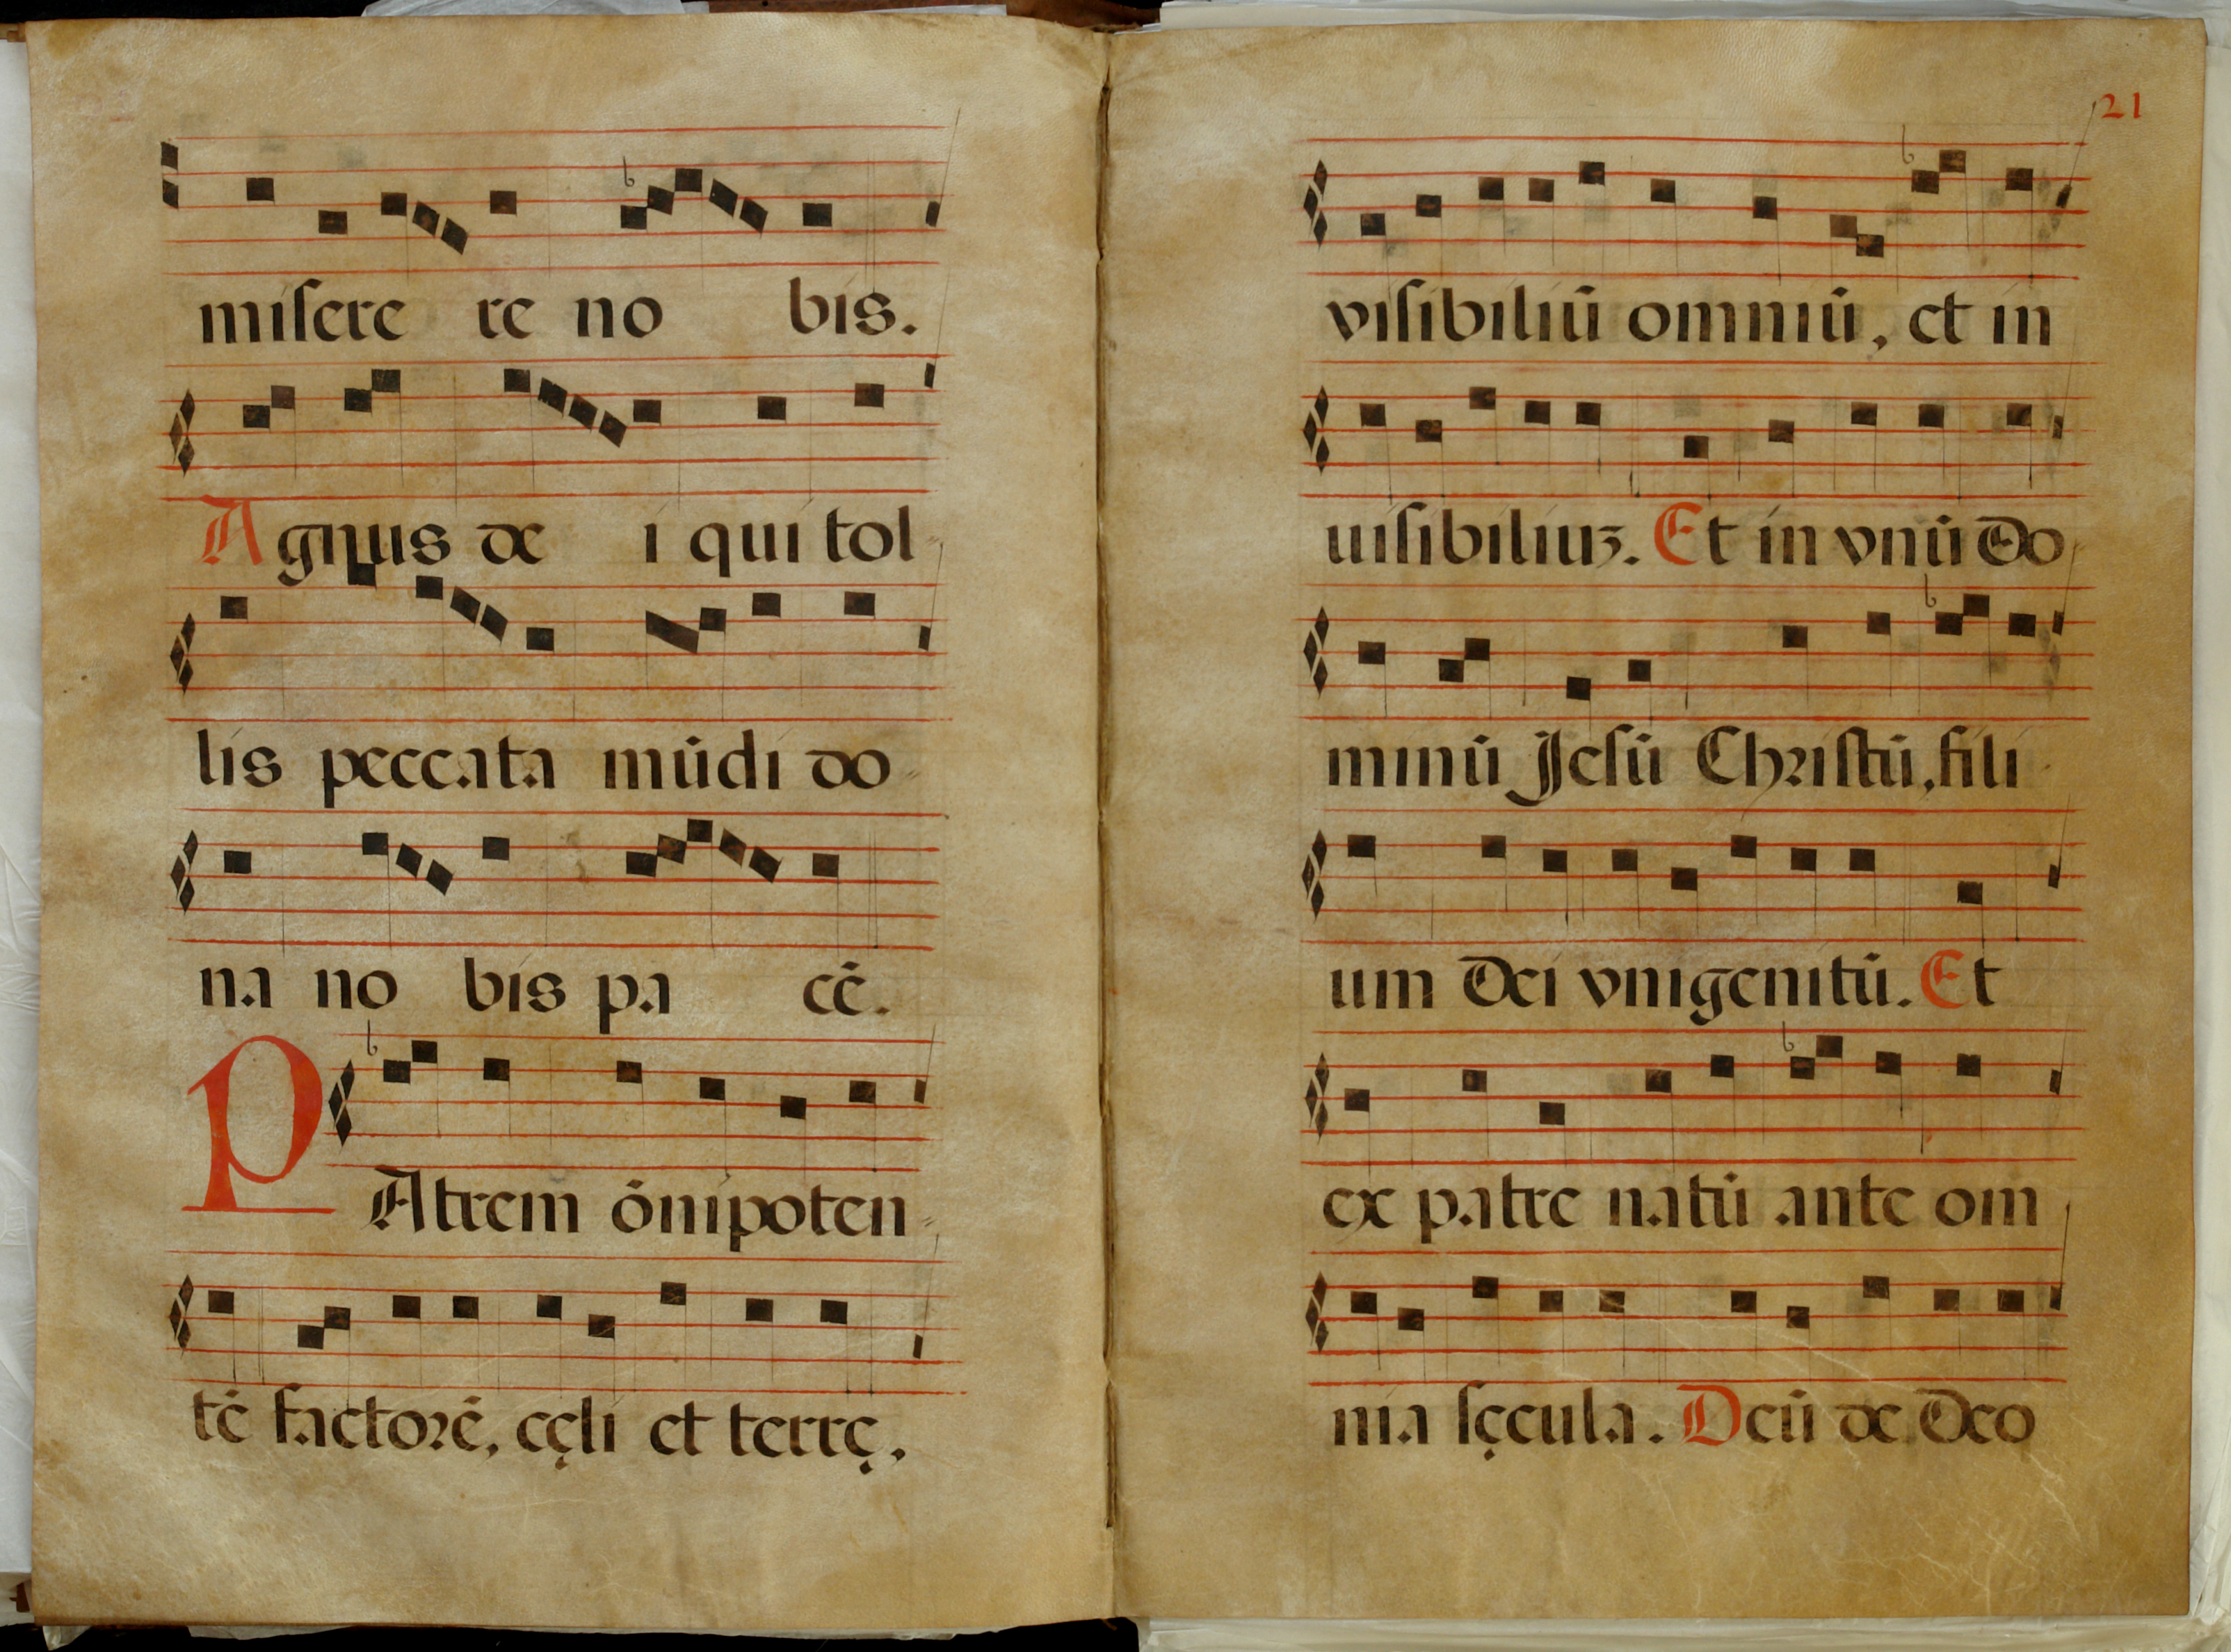 miſere re no bis.
Agnus de i qui tol
lis peccata mūdi do
na no bis pa cē.
PAtrem ōnipoten
tē factorē, cęli et terrę.
21
viſibiliū omniū, et in
uiſibiliuʒ. Et in vnū Do
minū Jeſū Chriſtū, fili
um Dei vnigenitū. Et
ex patre natū ante om
nia ſęcula. Deū de Deo